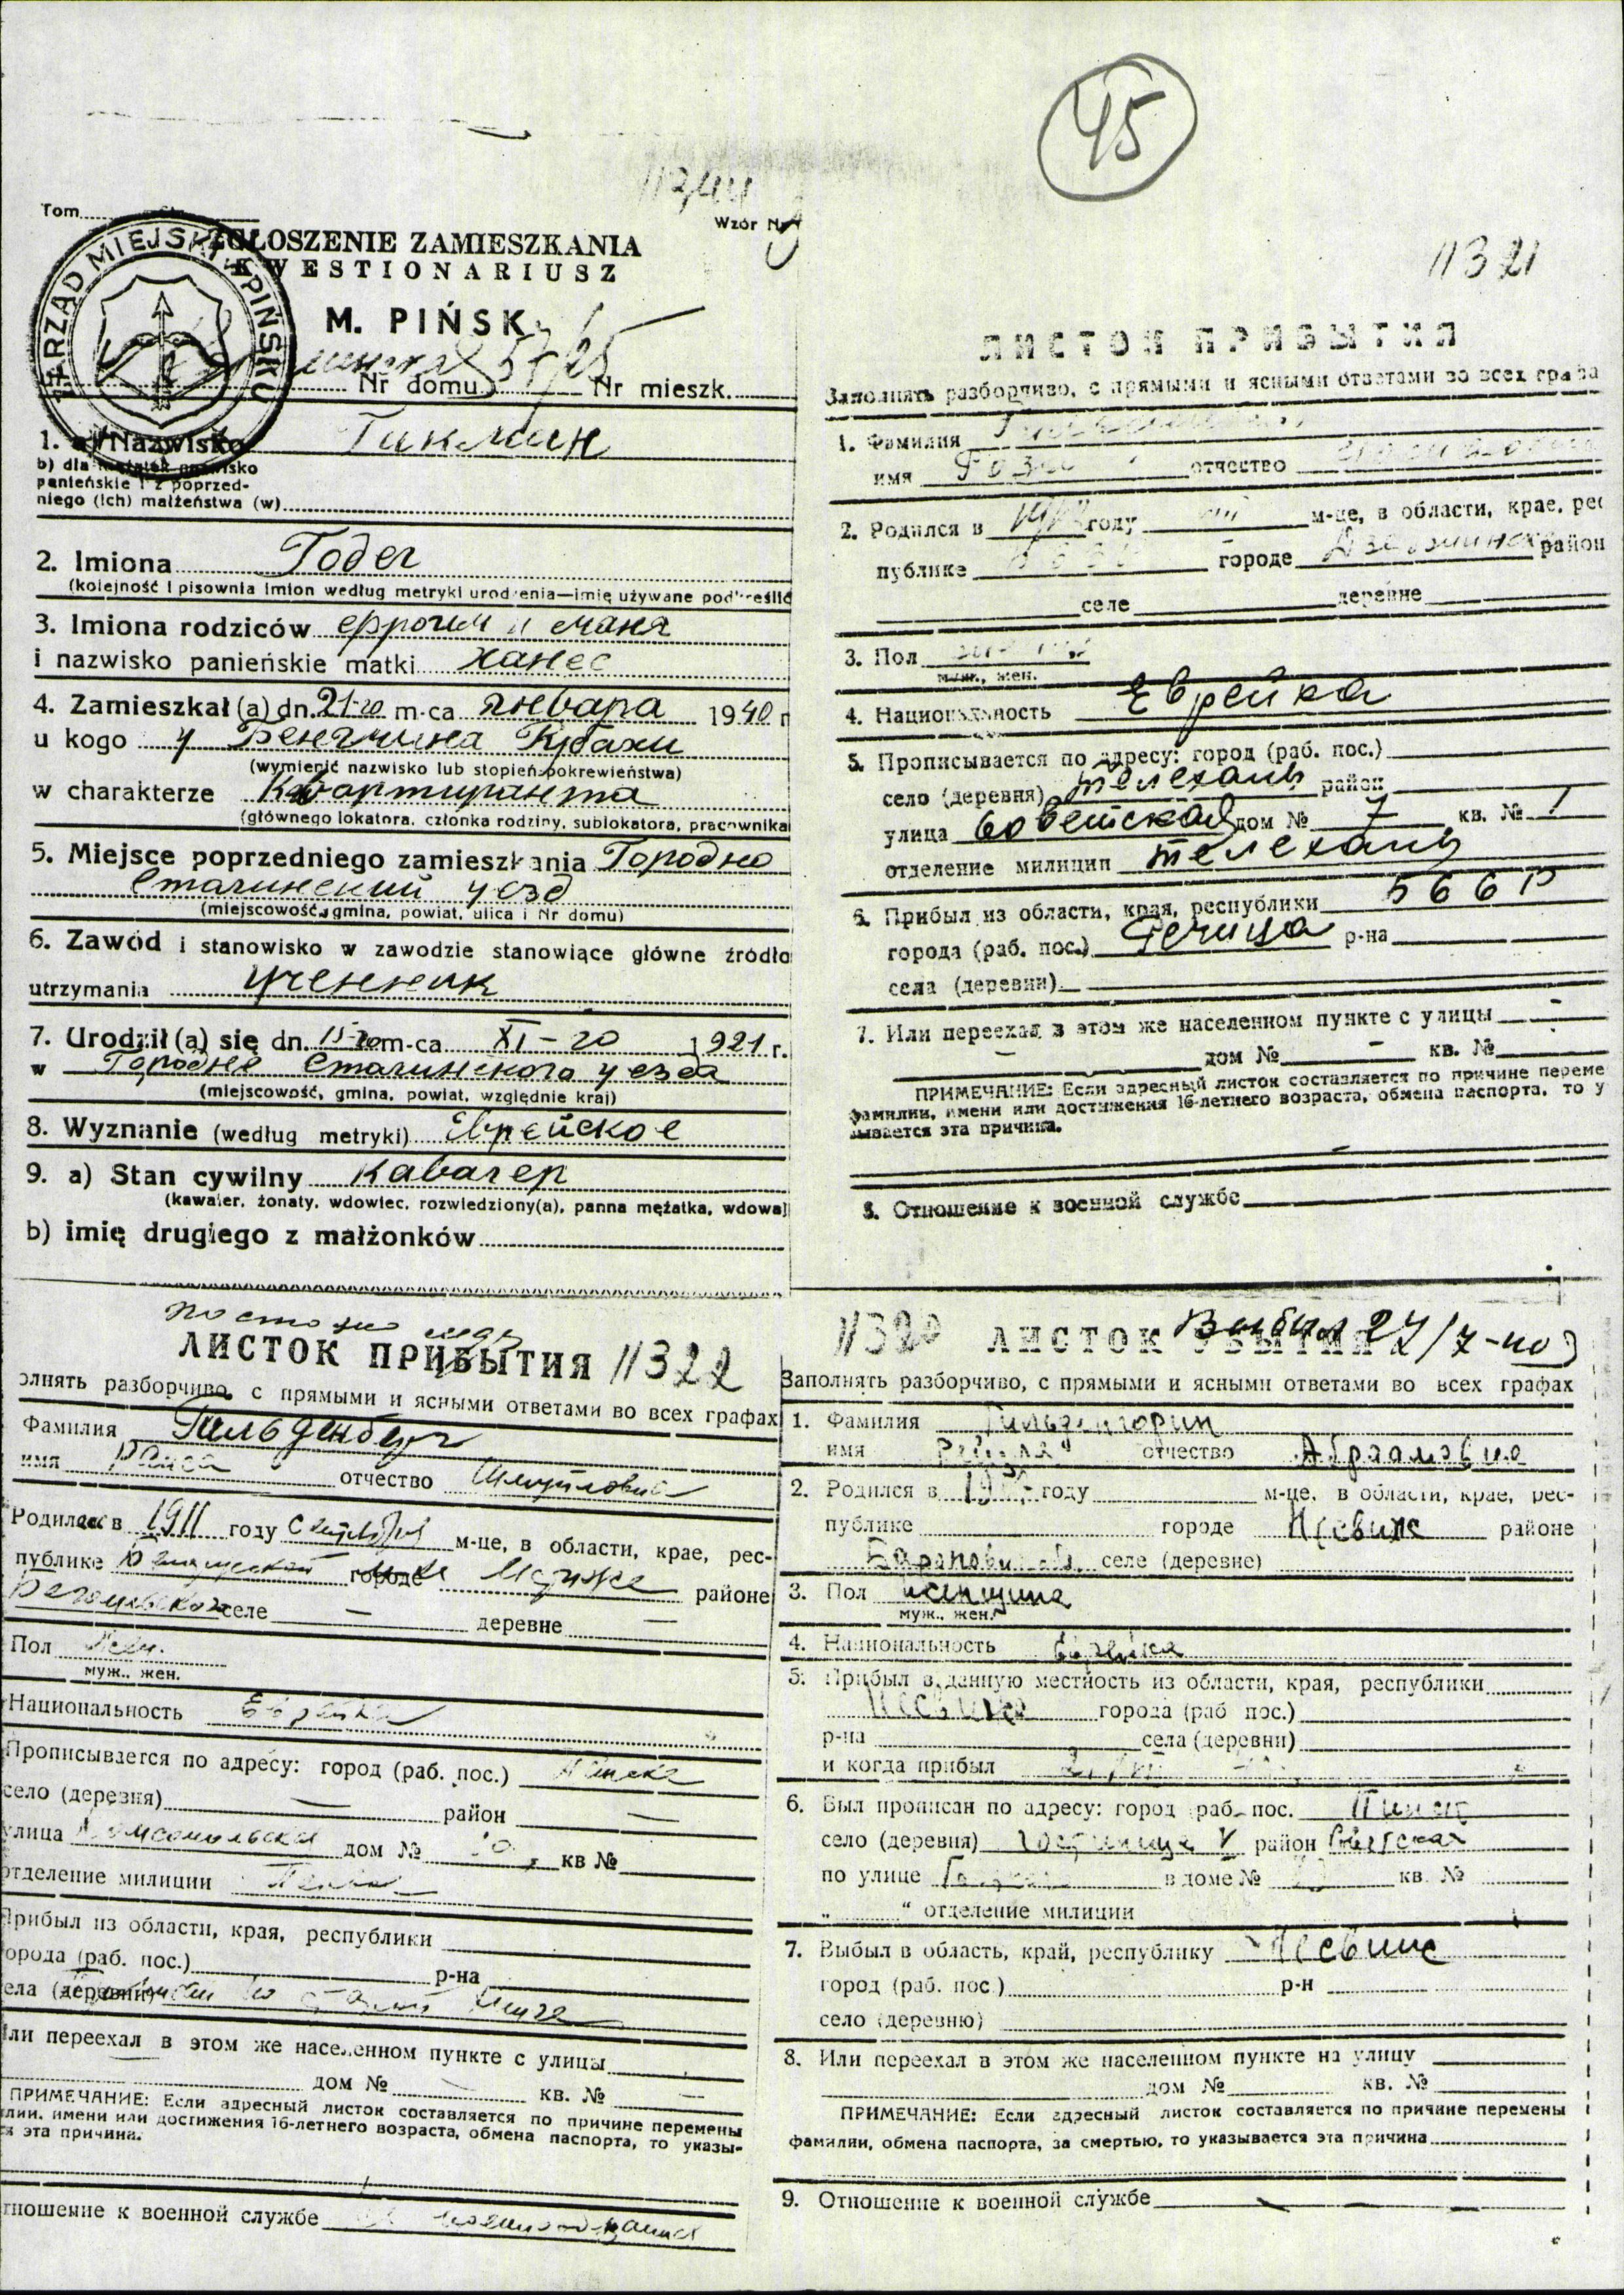 45
Tom
Wzór Nr
ZGŁOSZENIE ZAMIESZKANIA
KWESTIONARIUSZ
M. PIŃSK
ZARZĄD MIEJSKI W PIŃSKU
Nr domu 57/65 Nr mieszk.
1. a) Nazwisko Гикман
b) dla mężatek nazwisko
panieńskie i z poprzed-
niego (ich) małżeństwa (w)
2. Imiona Годел
(kolejność i pisownia imion według metryki urodzenia—imię używane podkreślić
3. Imiona rodziców ефроим и маня
i nazwisko panieńskie matki ханес
4. Zamieszkał (a) dn. 21-го m-ca января 1940 r
u kogo у
(wymienić nazwisko lub stopień pokrewieństwa)
w charakterze Квартиранта
(głównego lokatora, członka rodziny, sublokatora, pracownika
5. Miejsce poprzedniego zamieszkania Городно
Сталинский уезд
(miejscowość, gmina, powiat, ulica i Nr domu)
6. Zawód i stanowisko w zawodzie stanowiące główne źródło
utrzymania ученник
7. Urodził (a) się dn. 15-го m-ca XI-го 1921 r.
w Городне Сталинского уезда
(miejscowość, gmina, powiat, względnie kraj)
8. Wyznanie (według metryki) Еврейское
9. a) Stan cywilny Кавалер
(kawaler, żonaty, wdowiec, rozwiedziony(a), panna mężatka, wdowa)
b) imię drugiego z małżonków
11321
ЛИСТОК ПРИБЫТИЯ
Заполнять разборчиво, с прямыми и ясными ответами во всех графа
1. Фамилия
имя Роза отчество
2. Родился в году м-це, в области, крае, рес
публике БССР городе Дзержинск район
селе деревне
3. Пол
муж., жен.
4. Национальность Еврейка
5. Прописывается по адресу: город (раб. пос.)
село (деревня) телеханы район
улица Советская дом № 7 кв. № 1
отделение милиции телеханы
6. Прибыл из области, края, республики БССР
города (раб. пос.) Речица р-на
села (деревни)
7. Или переехал в этом же населенном пункте с улицы —
— дом № — кв. №
ПРИМЕЧАНИЕ: Если адресный листок составляется по причине переме
фамилии, имени или достижения 16-летнего возраста, обмена паспорта, то у
зывается эта причина.
8. Отношение к военной службе
ЛИСТОК ПРИБЫТИЯ 11322
олнять разборчиво, с прямыми и ясными ответами во всех графах
Фамилия Гильденберг
имя Раиса отчество Шмуйловна
Родилась в 1911 году м-це, в области, крае, рес-
публике городе районе
селе — деревне —
Пол Жен.
муж., жен.
Национальность Еврейка
Прописывается по адресу: город (раб. пос.) Пинске
село (деревня) — район —
улица Комсомольская дом № кв №
отделение милиции
Прибыл из области, края, республики
города (раб. пос.) р-на
села (деревни)
Или переехал в этом же населенном пункте с улицы
дом № кв. № —
ПРИМЕЧАНИЕ: Если адресный листок составляется по причине перемены
лии, имени или достижения 16-летнего возраста, обмена паспорта, то указы-
ся эта причина.
тношение к военной службе
11320 ЛИСТОК УБЫТИЯ Выбыл 27/7-40
Заполнять разборчиво, с прямыми и ясными ответами во всех графах
1. Фамилия Гильденгорин
имя отчество Абрамовна
2. Родился в году м-це, в области, крае, рес-
публике городе Несвиж районе
селе (деревне)
3. Пол женщина
муж., жен.
4. Национальность еврейка
5. Прибыл в данную местность из области, края, республики
Несвижа города (раб пос.)
р-на села (деревни)
и когда прибыл
6. Был прописан по адресу: город раб. пос. Пинск
село (деревня) район
по улице в доме № кв. №
„ “ отделение милиции
7. Выбыл в область, край, республику Несвиж
город (раб. пос.) р-н
село (деревню)
8. Или переехал в этом же населенном пункте на улицу
дом № кв. №
ПРИМЕЧАНИЕ: Если адресный листок составляется по причине перемены
фамилии, обмена паспорта, за смертью, то указывается эта причина
9. Отношение к военной службе